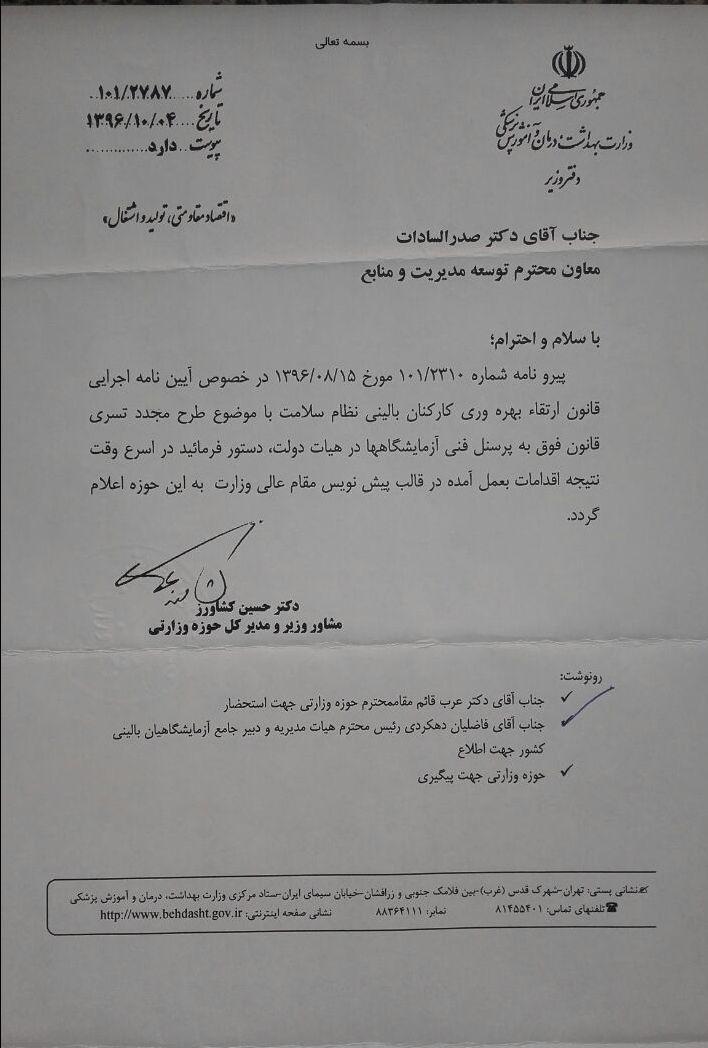 بسمه تعالی
جمهوری اسلامی ایران
وزارت بهداشت، درمان و آموزش پزشکی
دفتر وزیر
شماره.....۱۰۱/۲۷۸۷..
تاریخ....۱۳۹۶/۱۰/۰۴
پیوست..دارد.............
«اقتصاد مقاومتی، تولید و اشتغال»
جناب آقای دکتر صدرالسادات
معاون محترم توسعه مدیریت و منابع
با سلام و احترام؛
پیرو نامه شماره ۱۰۱/۲۳۱۰ مورخ ۱۳۹۶/۰۸/۱۵ در خصوص آیین نامه اجرایی
قانون ارتقاء بهره وری کارکنان بالینی نظام سلامت با موضوع طرح مجدد تسری
قانون فوق به پرسنل فنی آزمایشگاهها در هیات دولت، دستور فرمائید در اسرع وقت
نتیجه اقدامات بعمل آمده در قالب پیش نویس مقام عالی وزارت به این حوزه اعلام
گردد.
دکتر حسین کشاورز
مشاور وزیر و مدیر کل حوزه وزارتی
رونوشت:
✓ جناب آقای دکتر عرب قائم مقاممحترم حوزه وزارتی جهت استحضار
✓ جناب آقای فاضلیان دهکردی رئیس محترم هیات مدیریه و دبیر جامع آزمایشگاهیان بالینی
کشور جهت اطلاع
✓ حوزه وزارتی جهت پیگیری
نشانی پستی: تهران-شهرک قدس (غرب)-بین فلامک جنوبی و زرافشان-خیابان سیمای ایران-ستاد مرکزی وزارت بهداشت، درمان و آموزش پزشکی
تلفنهای تماس: ۸۱۴۵۵۴۰۱ نمابر: ۸۸۳۶۴۱۱۱ نشانی صفحه اینترنتی: http://www.behdasht.gov.ir